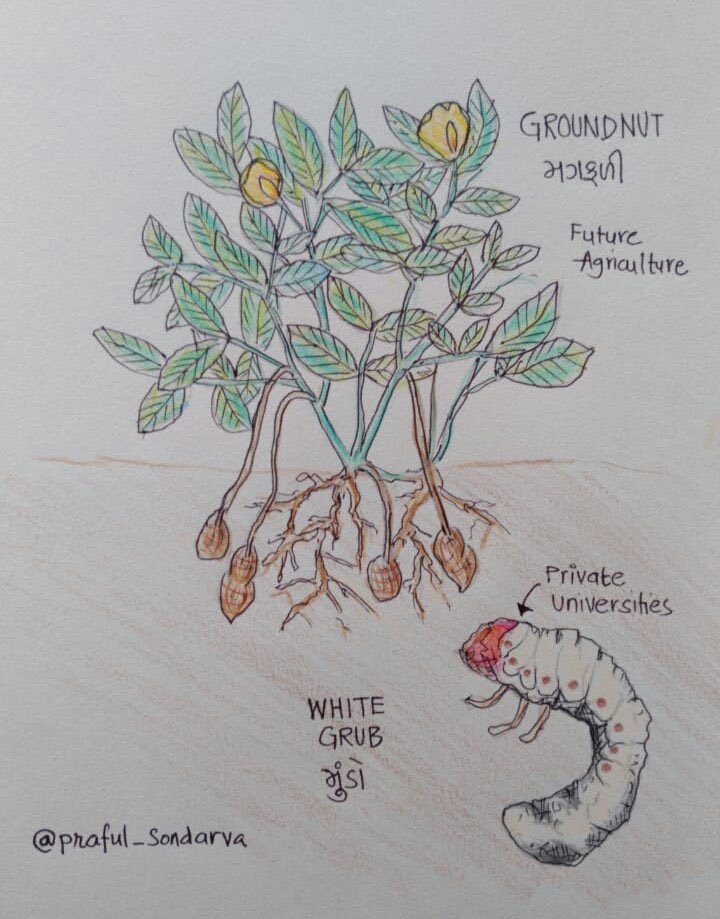 GROUNDNUT
મગફળી
Future
Agriculture
Private
universities
WHITE
GRUB
મુંડો
@praful_sondarva